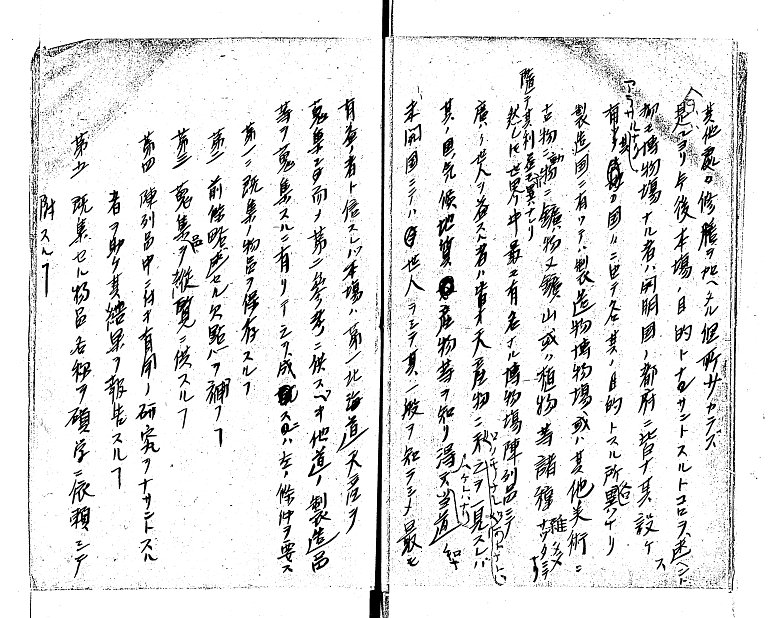 其他夥多修膳ヲ加ヘタル個所少カラズ
是ヨリ今後本場ノ目的トナサントスルトコロヲ述ヘントス
都テ博物場ナル者ハ開明国ノ都府ニ皆ナ其設ケ
アラサルナシ
有 国々ニ由テ各其ノ目的トスル所異ナリ
製造国ニ有リテハ製造物博物場或ハ其他美術ニ
古物ニ動物ニ鑛物又鑛山或ハ植物等諸種
随テ其利益モ異ナリ
然レトモ世界中最モ有名ナル博物場陳列品ニテ
廣ク世人ヲ益スル者ハ皆ナ天産物ニ 之ヲ一見スレバ
其ノ国ノ気候地質産物等ヲ知リ得 当道ノ如
未開国ニテハ世人ヲシテ其一般ヲ知ラシメ最モ
有益ノ者ト信スレバ本場ハ第一北海道天産ヲ
蒐集シ而メ第二参考ニ供スベキ他道ノ製造品
等ヲ蒐集スルニ有リテ之ヲ成スニハ左ノ條件ヲ要ス
第一 既集ノ物品ヲ保存スルヿ
第二 前能 セル欠點ヲ補フヿ
第三 蒐集品ヲ縦覧ニ供スルヿ
第四 陳列品中ニ付キ有用ノ研究ヲナサントスル
者ヲ助ケ其結果ヲ報告スルヿ
第五 既集セル物品名称ヲ碩学ニ依頼シテ
附スルヿ